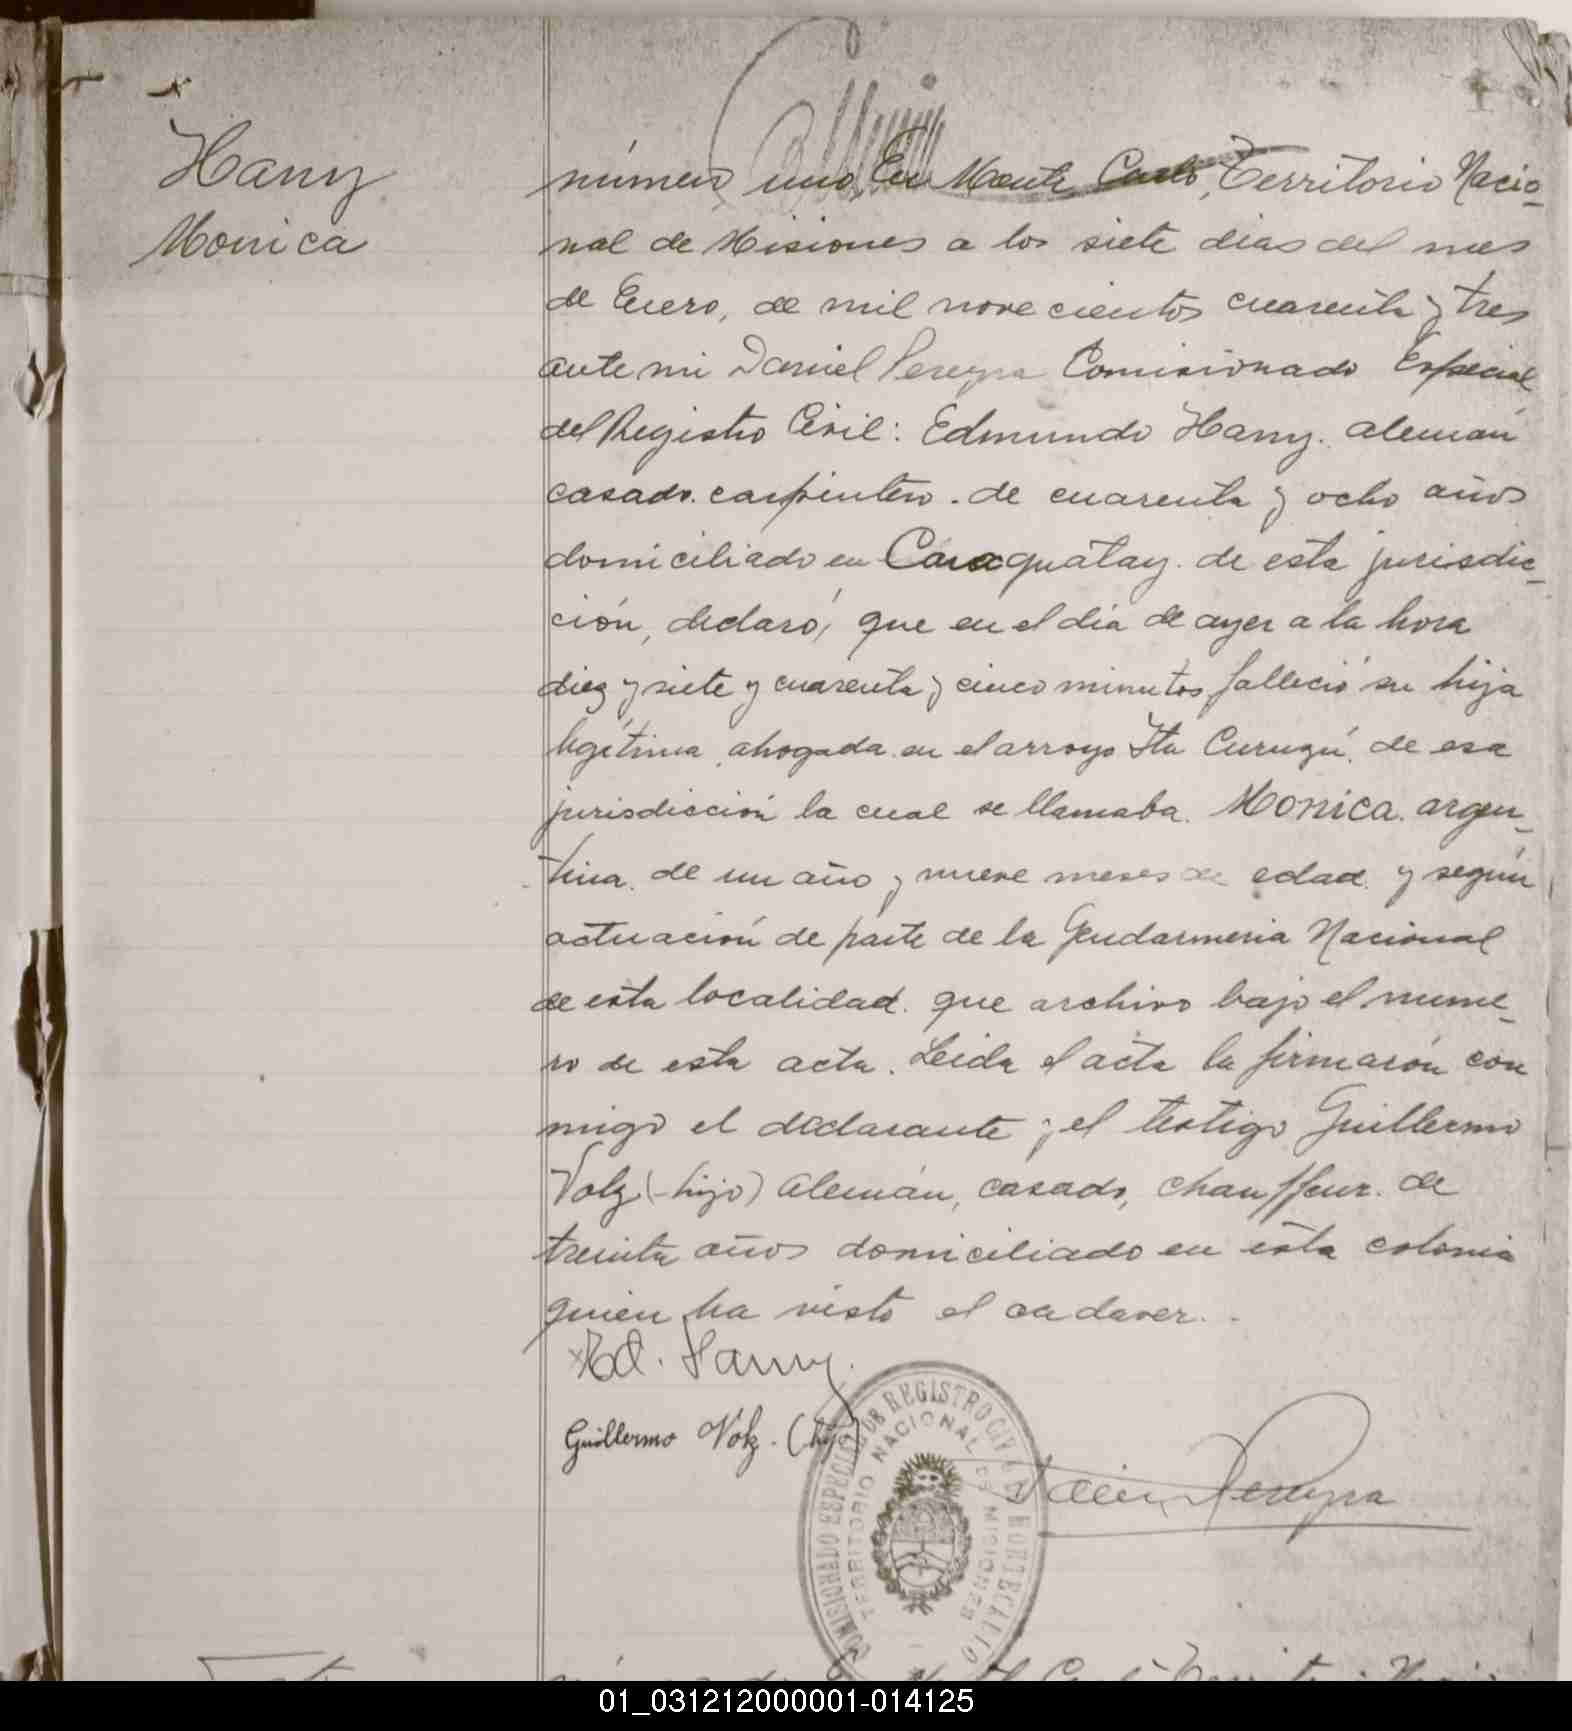 Hany
Monica
número uno, En Monte Carlo, Territorio Nacio-
nal de Misiones a los siete dias del mes
de Enero, de mil novecientos cuarenta y tres
ante mi Daniel Pereyra Comisionado Especial
del Registro Civil: Edmundo Hany. alemán
casado. carpintero. de cuarenta y ocho años
domiciliado en Caraguatay. de esta jurisdic-
ción, declaró, que en el dia de ayer a la hora
diez y siete y cuarenta y cinco minutos falleció su hija
legítima ahogada en el arroyo Ita Curuzú, de esa
jurisdicción la cual se llamaba. Monica. argen-
tina. de un año y nueve meses de edad. y según
actuación de parte de la Gendarmeria Nacional
de esta localidad. que archivo bajo el nume-
ro de esta acta. Leida el acta la firmarón con
migo el declarante y el testigo Guillermo
Volz (hijo) alemán, casado, chauffeur. de
treinta años domiciliado en esta colonia
quien ha visto el cadaver.
Ed. Hany.
Guillermo Volz. (hijo)
COMISIONADO ESPECIAL DE REGISTRO CIVIL MONTECARLO
TERRITORIO NACIONAL DE MISIONES
Daniel Pereyra
01_031212000001-014125